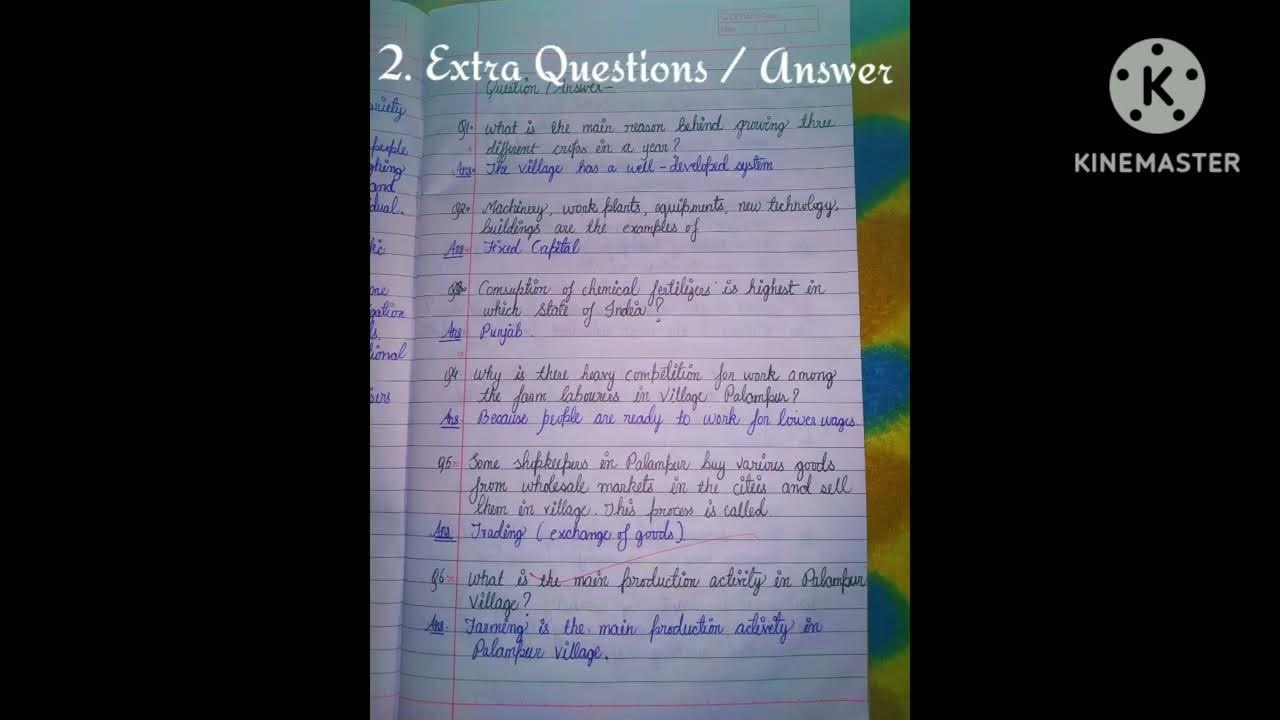 2. Extra Questions / Answer
K
KINEMASTER
Question / Answer-
Q1- What is the main reason behind growing three
different crops in a year?
Ans- The village has a well-developed system
Q2- Machinery, work plants, equipments, new technology,
buildings are the examples of
Ans- Fixed Capital
Q3- Comsuption of chemical fertilizers is highest in
which state of India?
Ans- Punjab.
Q4- Why is there heavy competition for work among
the farm labourers in village Palampur?
Ans- Because people are ready to work for lower wages
Q5- Some shopkeepers in Palampur buy various goods
from wholesale markets in the cities and sell
them in village. This process is called.
Ans- Trading (exchange of goods)
Q6- What is the main production activity in Palampur
village?
Ans- Farming is the main production activity in
Palampur village.
people
and
dual.
gation
tional